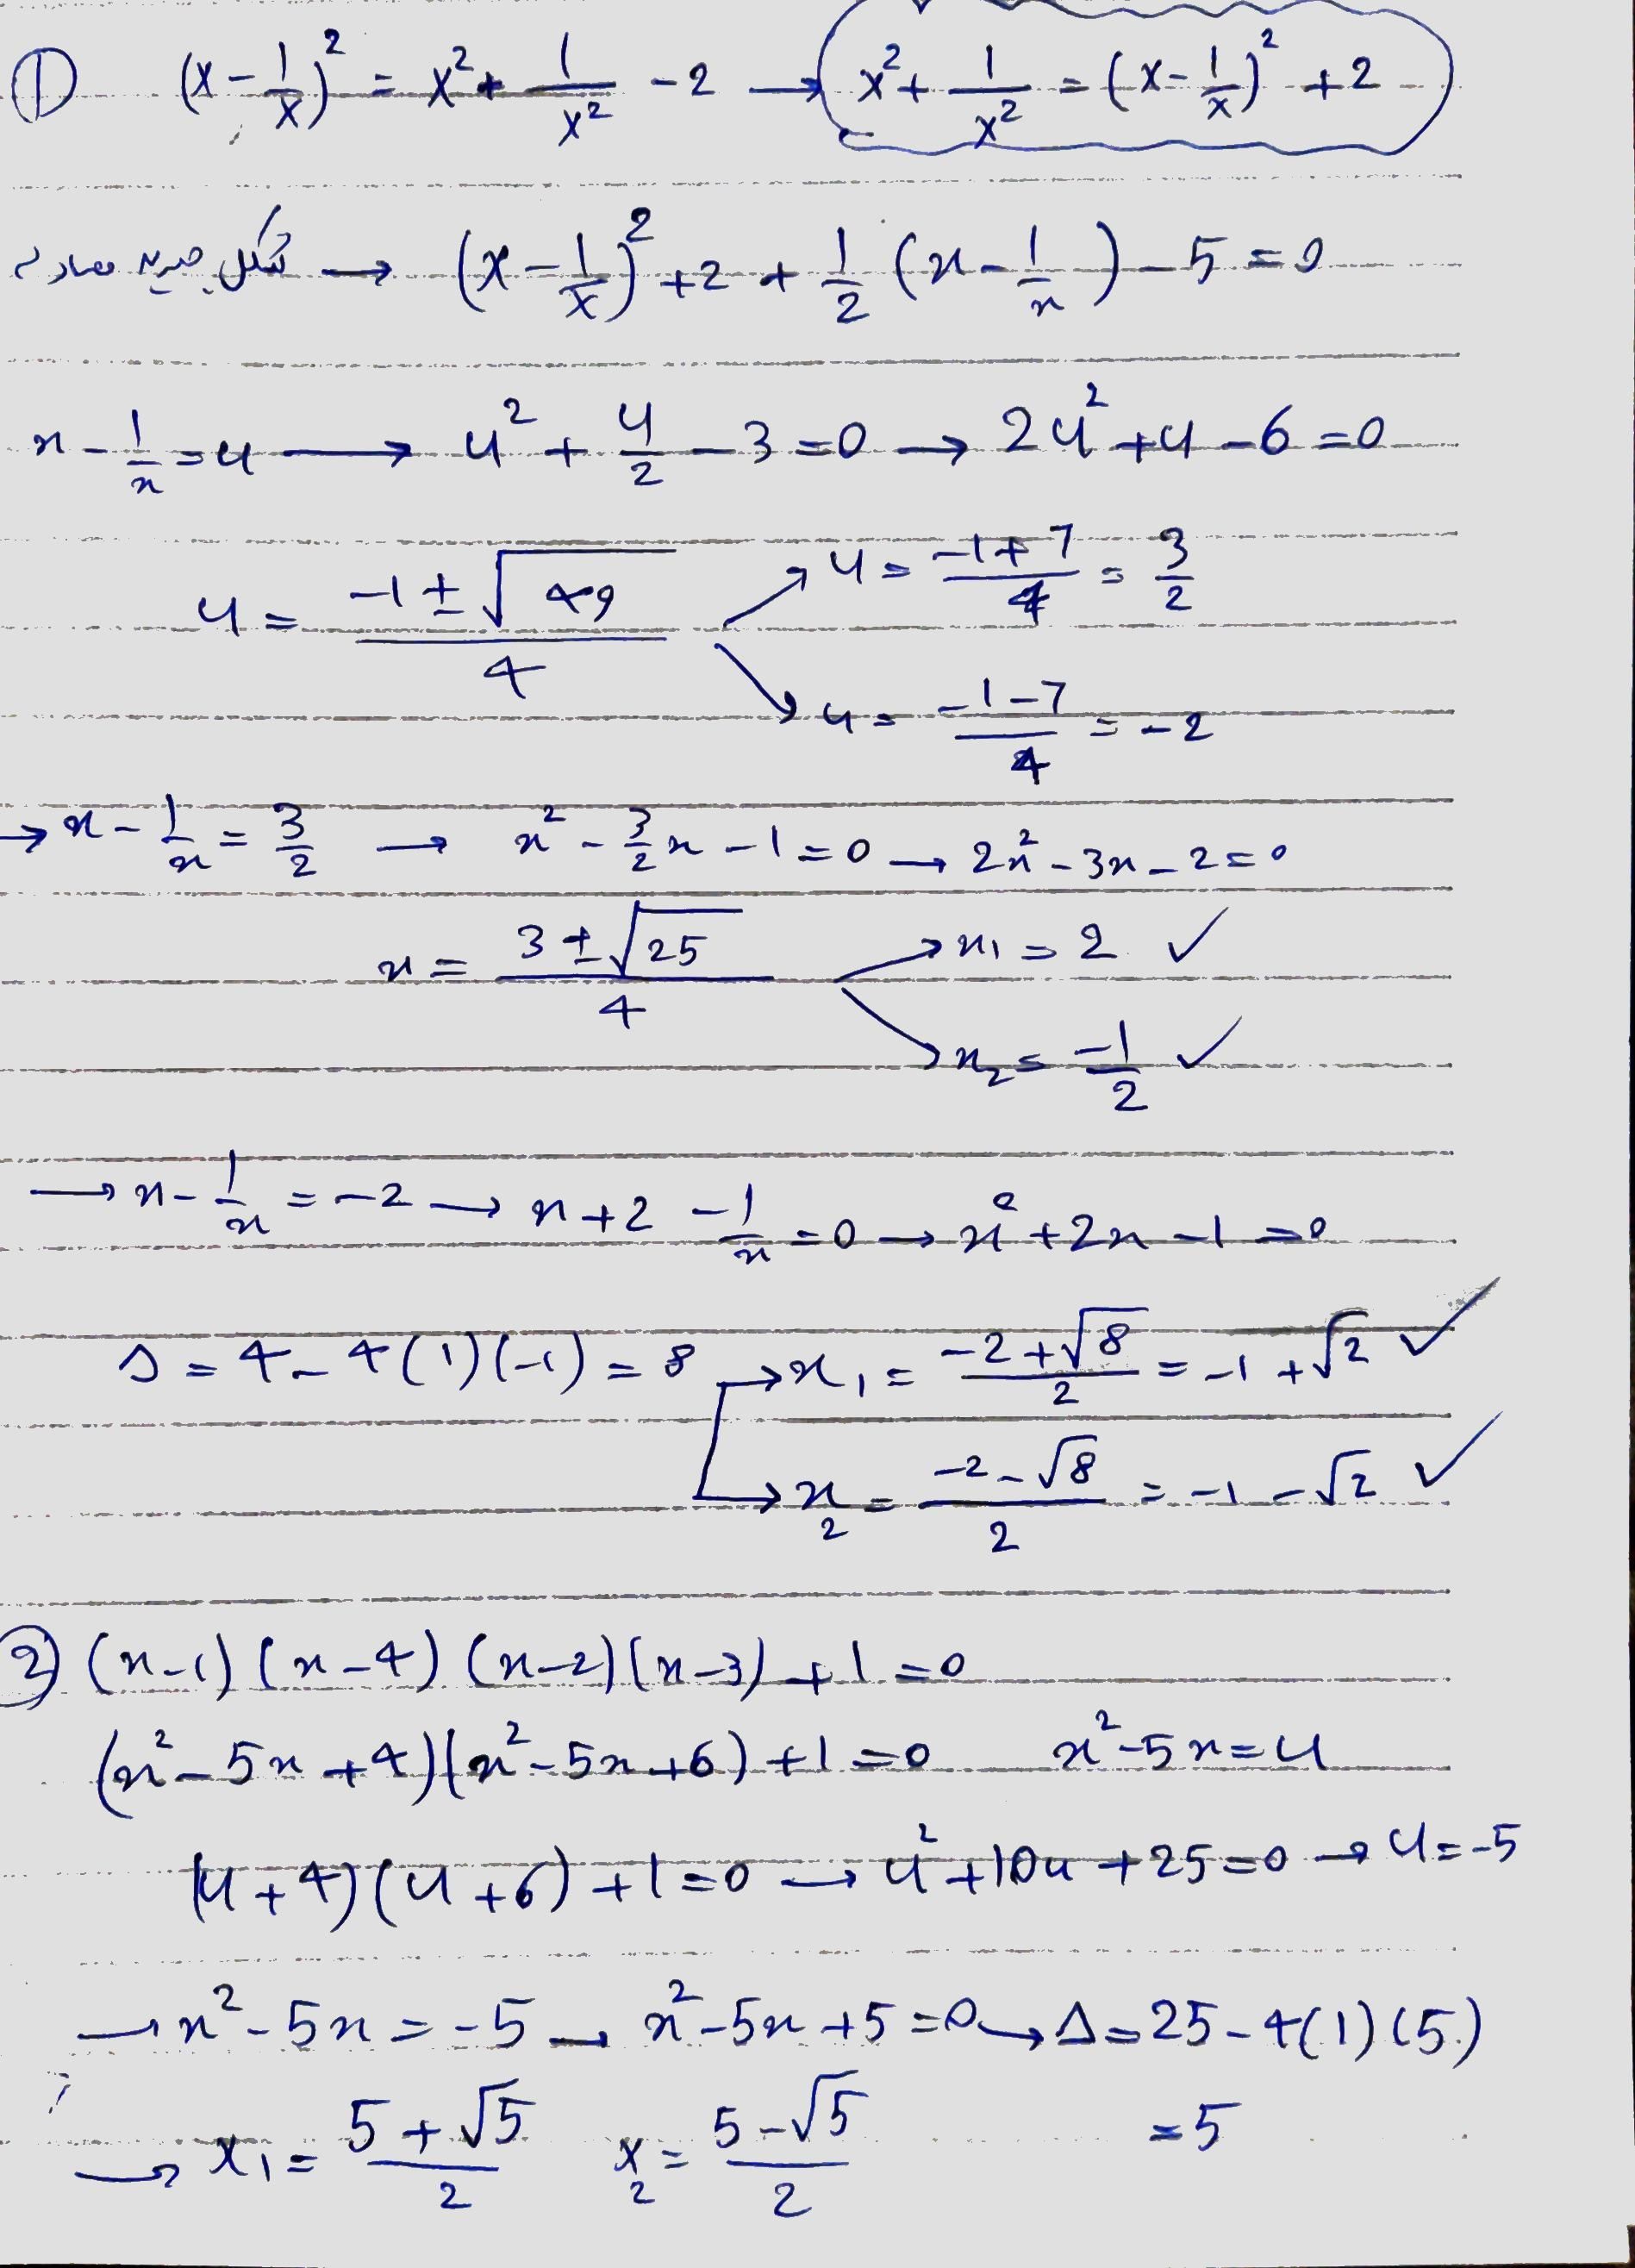 ① (x - 1/x)² = x² + 1/x² - 2 → x² + 1/x² = (x - 1/x)² + 2
شکل جدید معادله → (x - 1/x)² + 2 + 1/2 (x - 1/x) - 5 = 0
x - 1/x = u → u² + u/2 - 3 = 0 → 2u² + u - 6 = 0
u = (-1 ± √49)/4 ↗ u = (-1+7)/4 = 3/2
↘ u = (-1-7)/4 = -2
→ x - 1/x = 3/2 → x² - 3/2 x - 1 = 0 → 2x² - 3x - 2 = 0
x = (3 ± √25)/4 ↗ x₁ = 2 ✓
↘ x₂ = -1/2 ✓
→ x - 1/x = -2 → x + 2 - 1/x = 0 → x² + 2x - 1 = 0
Δ = 4 - 4(1)(-1) = 8 → x₁ = (-2 + √8)/2 = -1 + √2 ✓
→ x₂ = (-2 - √8)/2 = -1 - √2 ✓
② (x-1)(x-4)(x-2)(x-3) + 1 = 0
(x² - 5x + 4)(x² - 5x + 6) + 1 = 0 x² - 5x = u
(u + 4)(u + 6) + 1 = 0 → u² + 10u + 25 = 0 → u = -5
→ x² - 5x = -5 → x² - 5x + 5 = 0 → Δ = 25 - 4(1)(5)
= 5
→ x₁ = (5 + √5)/2 x₂ = (5 - √5)/2